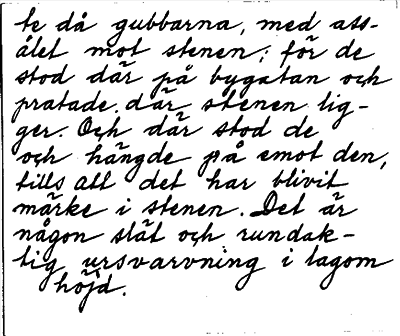 te då gubbarna, med ass-
ålet mot stenen; för de
stod där på bygatan och
pratade där stenen lig-
ger. Och där stod de
och hängde på emot den,
tills att det har blivit
märke i stenen. Det är
någon slät och rundak-
tig ursvarvning i lagom
höjd.